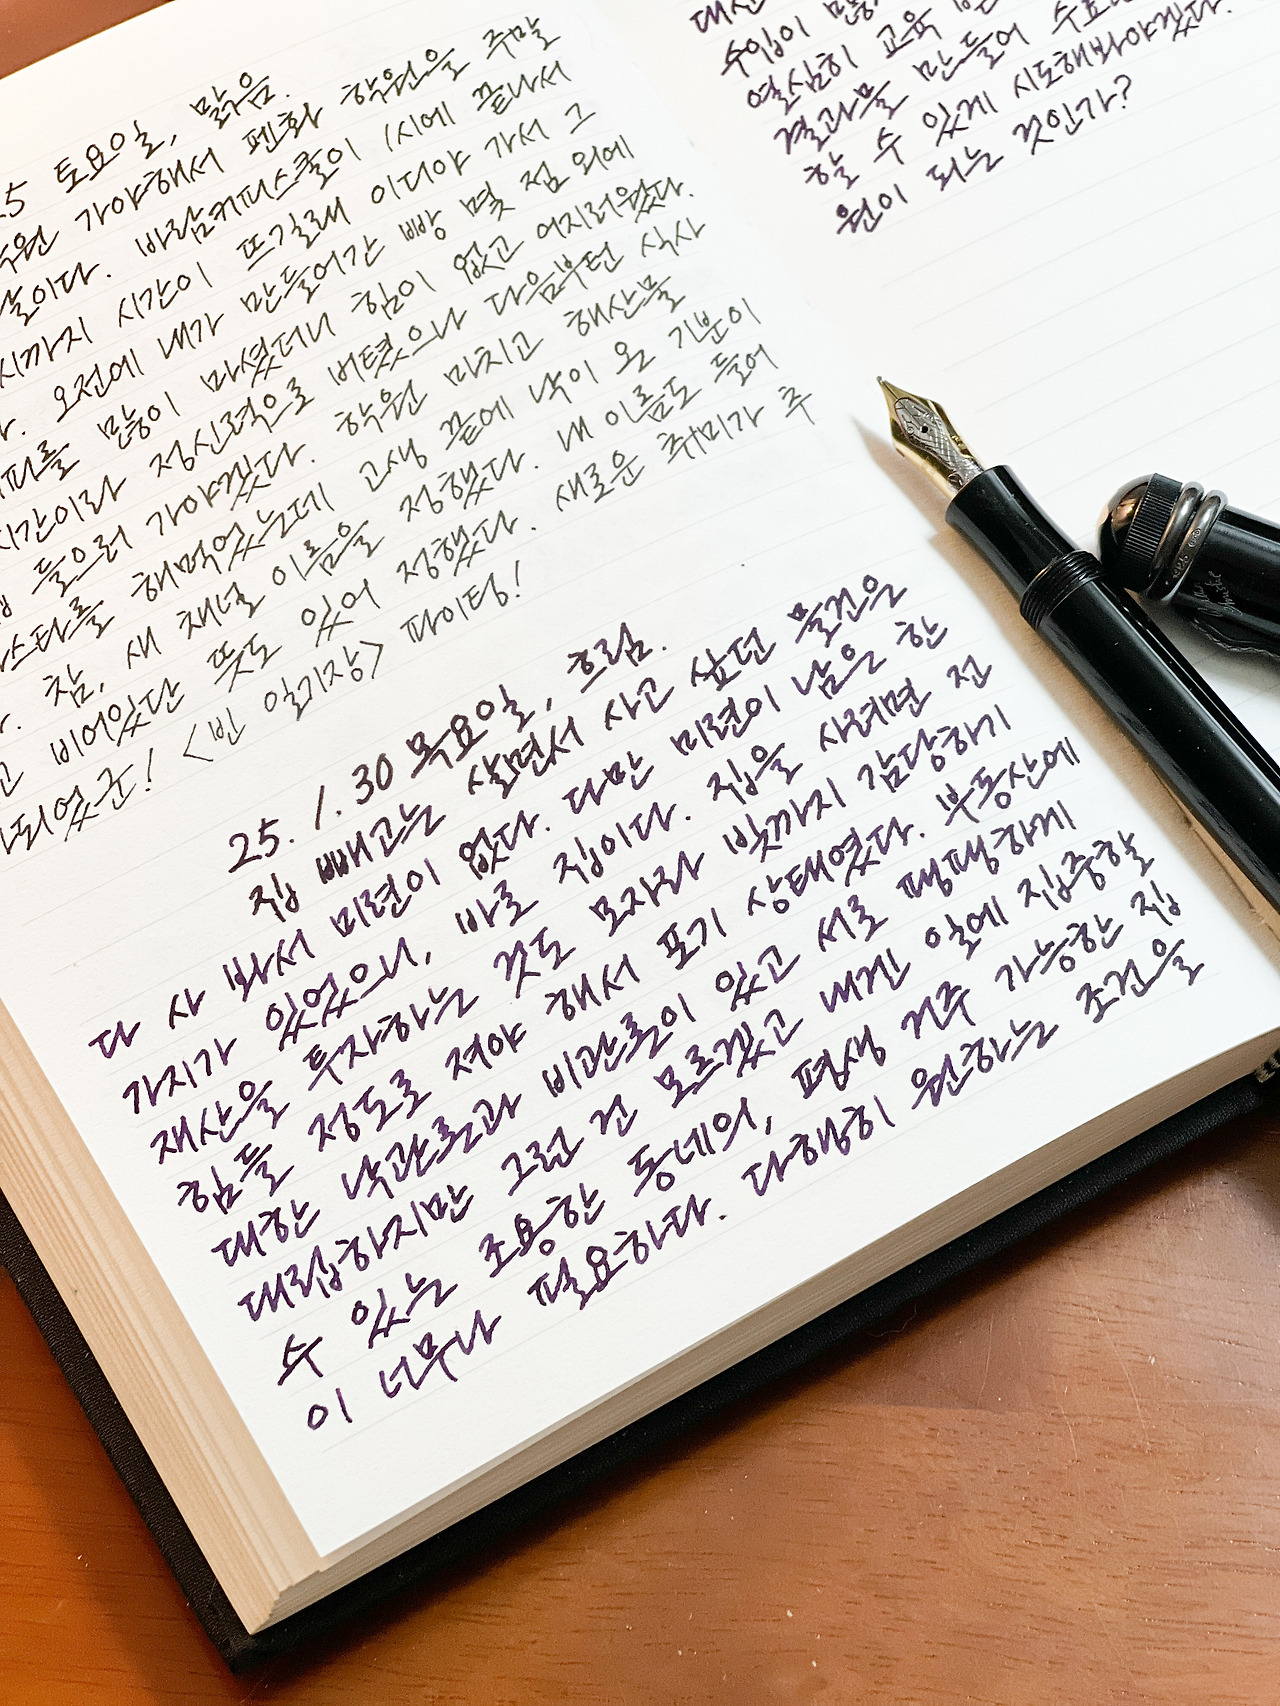 25 토요일, 맑음.
수원 가야해서 펜화 학원은 주말
날이다. 바람커피스쿨이 1시에 끝나서
시까지 시간이 뜨길래 이디야 가서 그
다. 오전에 내가 만들어간 빵 몇 점 외에
커피를 많이 마셨더니 힘이 없고 어지러웠다.
시간이라 정신력으로 버텼으나 다음부턴 식사
들으러 가야겠다. 학원 마치고 해산물
스타를 해먹었는데 고생 끝에 낙이 온 기분이
다. 참, 새 채널 이름을 정했다. 내 이름도 들어
고 비어있단 뜻도 있어 정했다. 새로운 취미가 추
가되었군! <빈 일기장> 파이팅!
25. 1. 30 목요일, 흐림.
집 빼고는 살면서 사고 싶던 물건은
다 사 봐서 미련이 없다. 다만 미련이 남은 한
가지가 있었으니, 바로 집이다. 집을 사려면 전
재산을 투자하는 것도 모자라 빚까지 감당하기
힘들 정도로 져야 해서 포기 상태였다. 부동산에
대한 낙관론과 비관론이 있고 서로 팽팽하게
대립하지만 그런 건 모르겠고 내겐 일에 집중할
수 있는 조용한 동네의, 평생 거주 가능한 집
이 너무나 필요하다. 다행히 원하는 조건을
수입이 많
열심히 교육
결과물 만들어 수료
할 수 있게 시도해봐야겠다.
원이 되는 것인가?